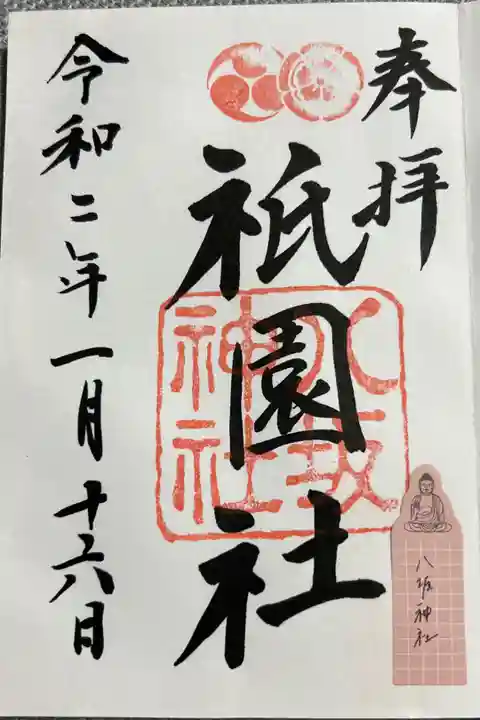 奉拝
祇園社
八坂神社
令和二年一月十六日
八坂神社